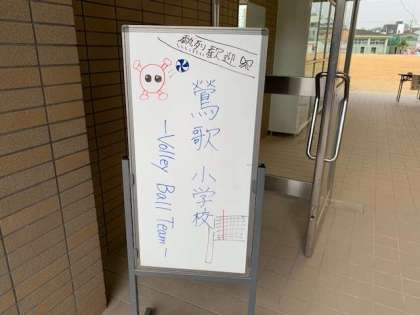 熱烈歓迎
鶯歌小学校
-Volley Ball Team-